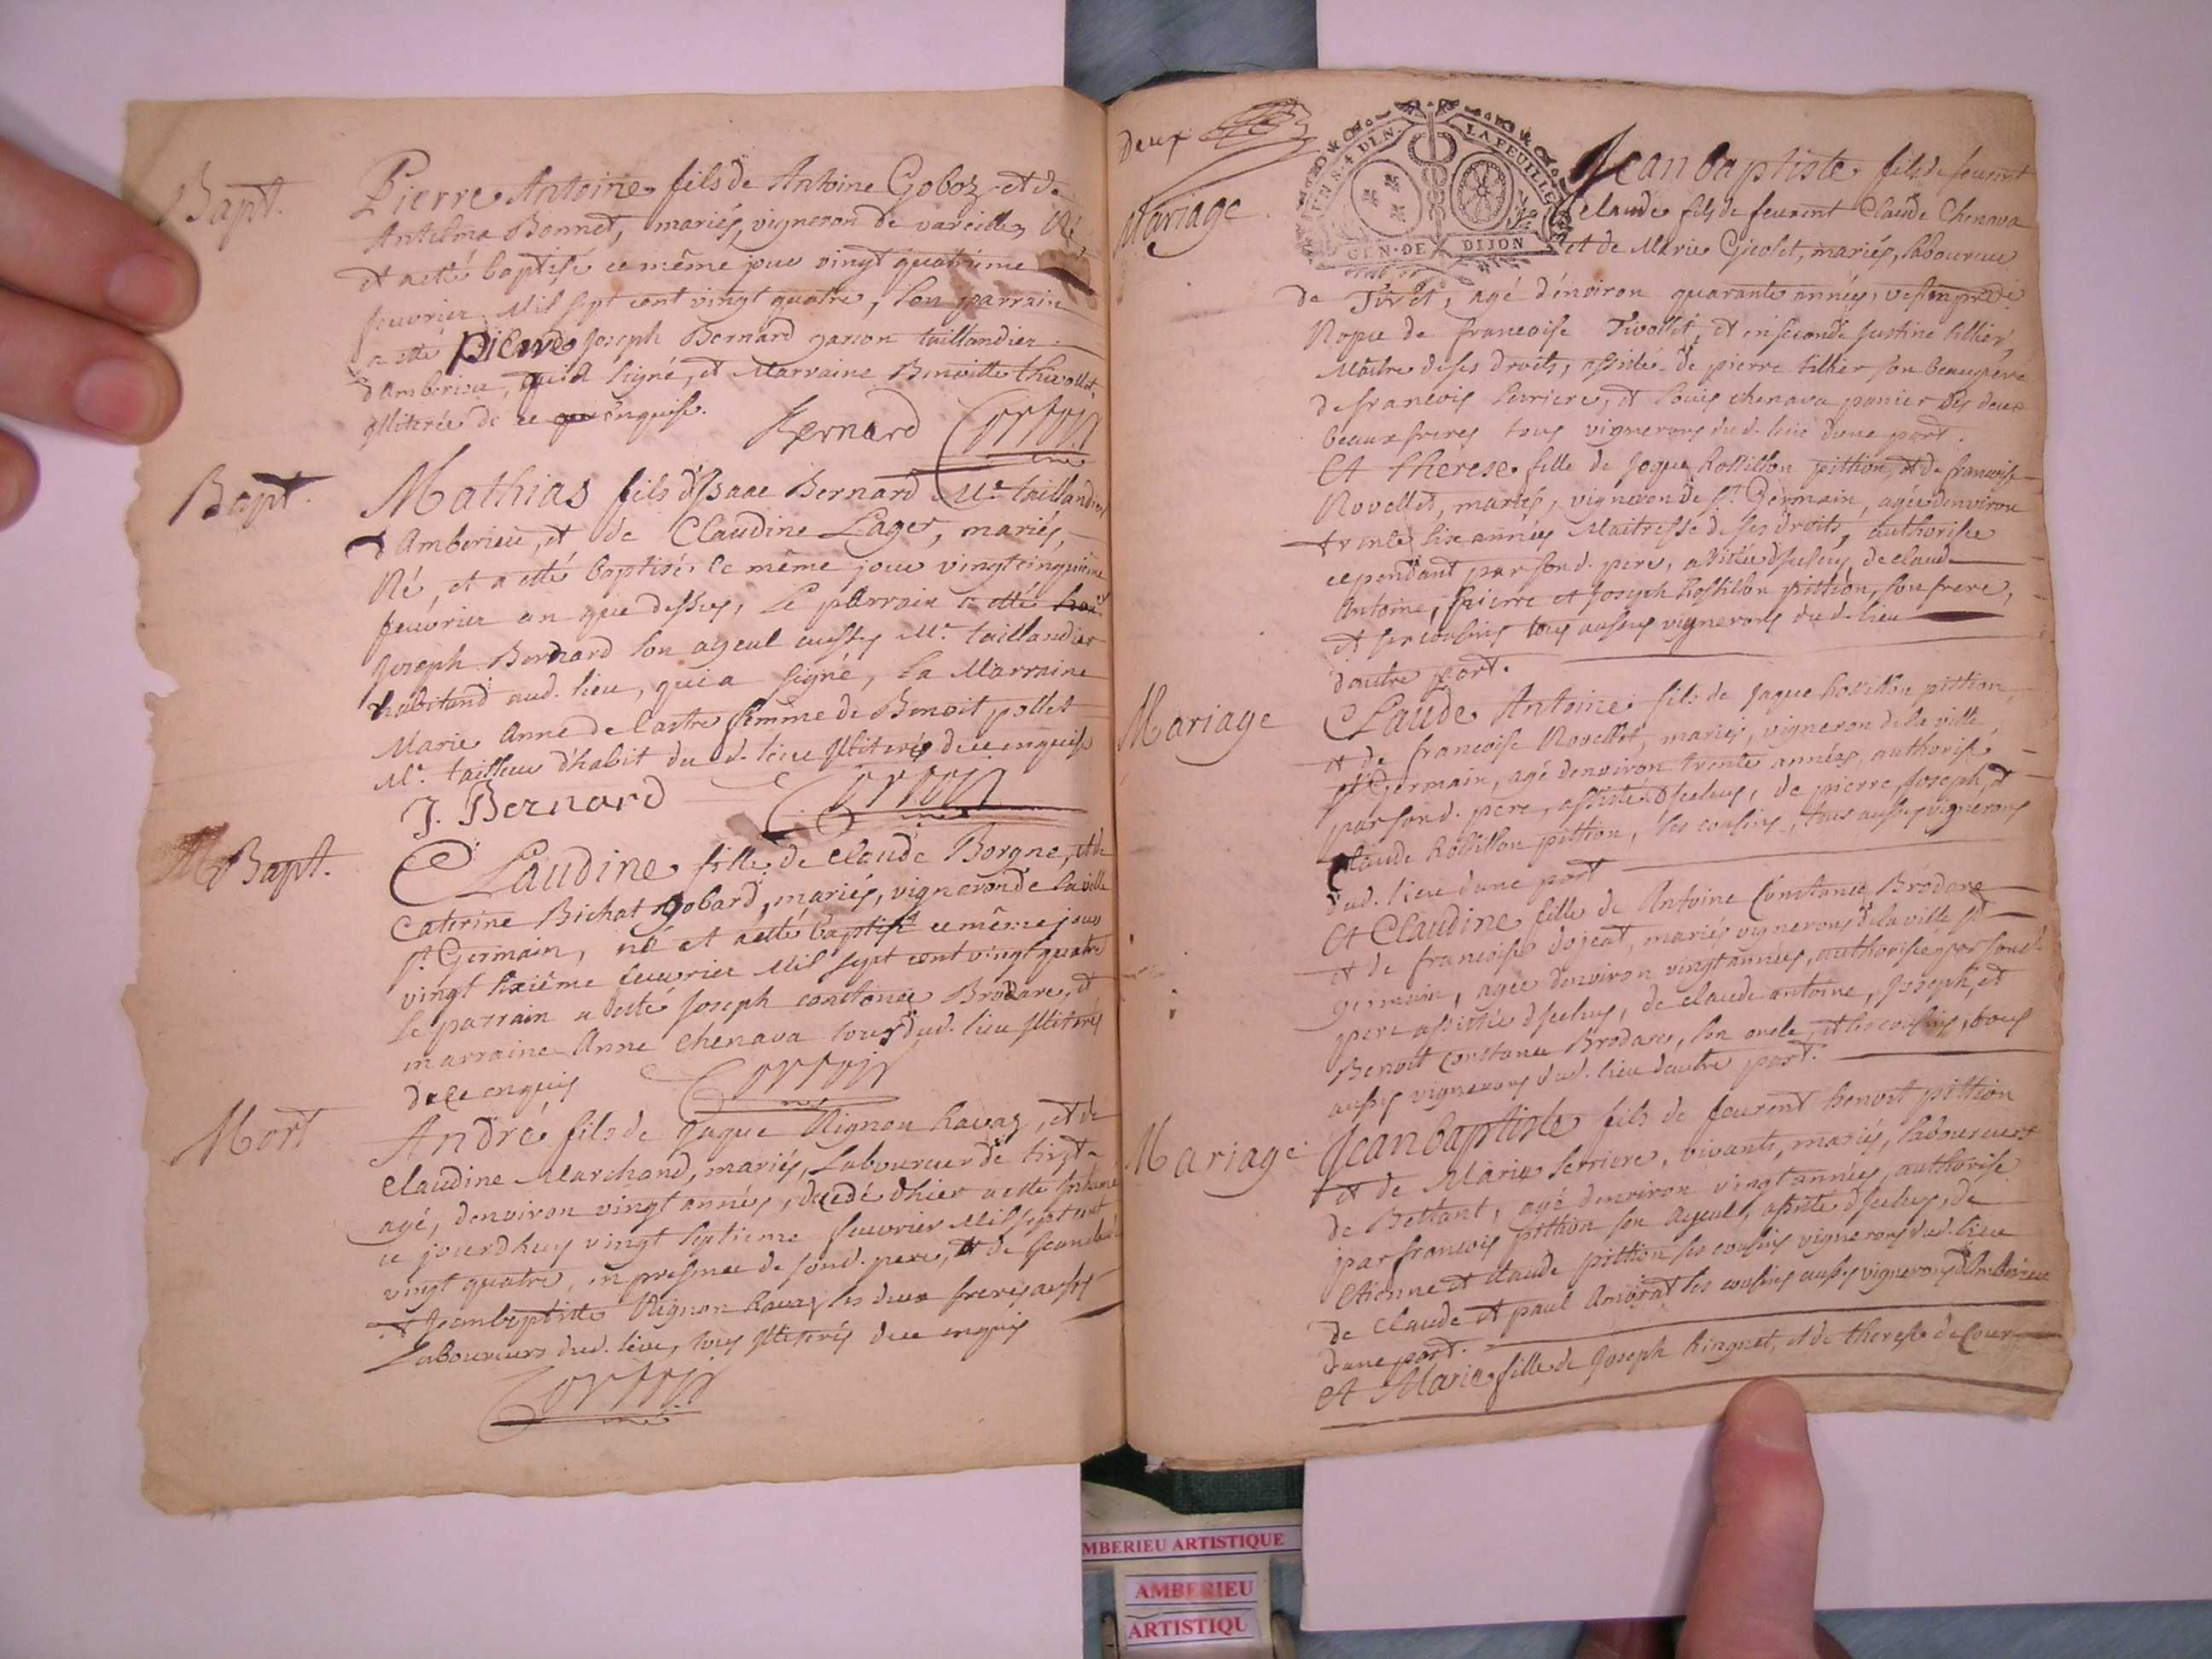 Bapt.
Pierre Antoine fils de Antoine Goboz et de
Antelma Bonnet, mariés, vigneron de vareilles, Né
et aesté baptisé ce même jour vingt quatrieme
feuvrier Mil sept cent vingt quatre, son parrain
a esté pierre Joseph Bernard garcon taillandier
d'Amberieu, qui a signé, et Marraine Benoitte thivollet
Illiterée de ce enquise.
Bernard
Bapt.
Mathias fils d'Isaac Bernard Me. taillandier
d'Amberieu, et de Claudine Lager, mariés,
Né, et a esté baptisé le même jour vingtcinquieme
feuvrier an que dessus, le parrain a esté
Joseph Bernard son ayeul aussy Me. taillandier
habitand aud. lieu, qui a signé, la Marraine
Marie Anne de lastre femme de Benoit pollet
Me. tailleur d'habit du d. lieu Illiterés de ce enquis
J. Bernard
Bapt.
Claudine fille de Claude Borgne, et de
Caterine Bichat gobard, mariés, vigneron de la ville
St. Germain, né et aesté baptisé ce même jour
vingt sixiême feuvrier Mil sept cent vingt quatre
le parrain a esté Joseph constance Brodare, et
marraine Anne Chenava tous dud. lieu Illiterés
de ce enquis
Mort
André fils de Jaque Rignon Ravaz, et de
Claudine Marchand, mariés, Laboureur de tiret
agé, denviron vingt années, decedé dhier a esté Inhumé
ce jourdhuy vingt septieme feuvrier Mil sept cent
vingt quatre, en presence de son d. pere, et de
et Jeanbaptiste Rignon Ravaz ses deux freres aussy
Laboureurs dud. lieu, tous Illiterés de ce enquis
Deux
UN S. 4 D. LN. LA FEUILLE
GEN. DE DIJON
Mariage
Jean baptiste fils de feurent
Claude fils de feurent Claude Chenava
et de Marie Gicolet, mariés, laboureur
de Tiret, agé d'environ quarante années, vesf
Nopce de francoise Tivollet, et en seconde Justine tillier,
Maitre de ses droits, assisté de pierre tillier son beaupere
de francois serriere, et Louis chenava panier ses deux
beaux freres tous vignerons du d. lieu dune part.
Et therese fille de Jaque Rossillon pittion, et de francoise
Rovellet, mariés, vigneron de St. Germain, agée denviron
trente six années Maitresse de ses droits, authorisée
cependant par son d. pere, assistée d'iceluy, de claude
Antoine, pierre et Joseph Rossillon pittion, son frere,
et ses cousins tous aussy vignerons du d. lieu
d'autre part.
Mariage
Claude Antoine fils de Jaque Rossillon pittion,
et de francoise Rovellet, mariés, vigneron de la ville
St. Germain, agé denviron trente années, authorisé
par son d. pere, assisté d'iceluy, de pierre, Joseph, et
Claude Rossillon pittion, ses cousins, tous aussy vignerons
dud. lieu dune part
Et Claudine fille de Antoine Constance Brodare
et de francoise dojeat, mariés vignerons de la ville St
germain, agée denviron vingt années, authorisée par son d.
pere assistée d'iceluy, de claude antoine, Joseph, et
Benoit Constance Brodare, son oncle, et ses cousins, tous
aussy vignerons dud. lieu d'autre part.
Mariage
Jeanbaptiste fils de feurent benoit pittion
et de Marie serriere, vivants, mariés, laboureurs
de Bettant, agé denviron vingt années, authorisé
par francois pittion son ayeul, assisté d'iceluy, de
Etienne et claude pittion ses cousins vignerons dud. lieu
de Claude et paul Amorat ses cousins aussy vignerons d'Amberieu
dune part.
Et Marie fille de Joseph Ringuet, et de therese de Cour
MBERIEU ARTISTIQUE
AMBERIEU
ARTISTIQU